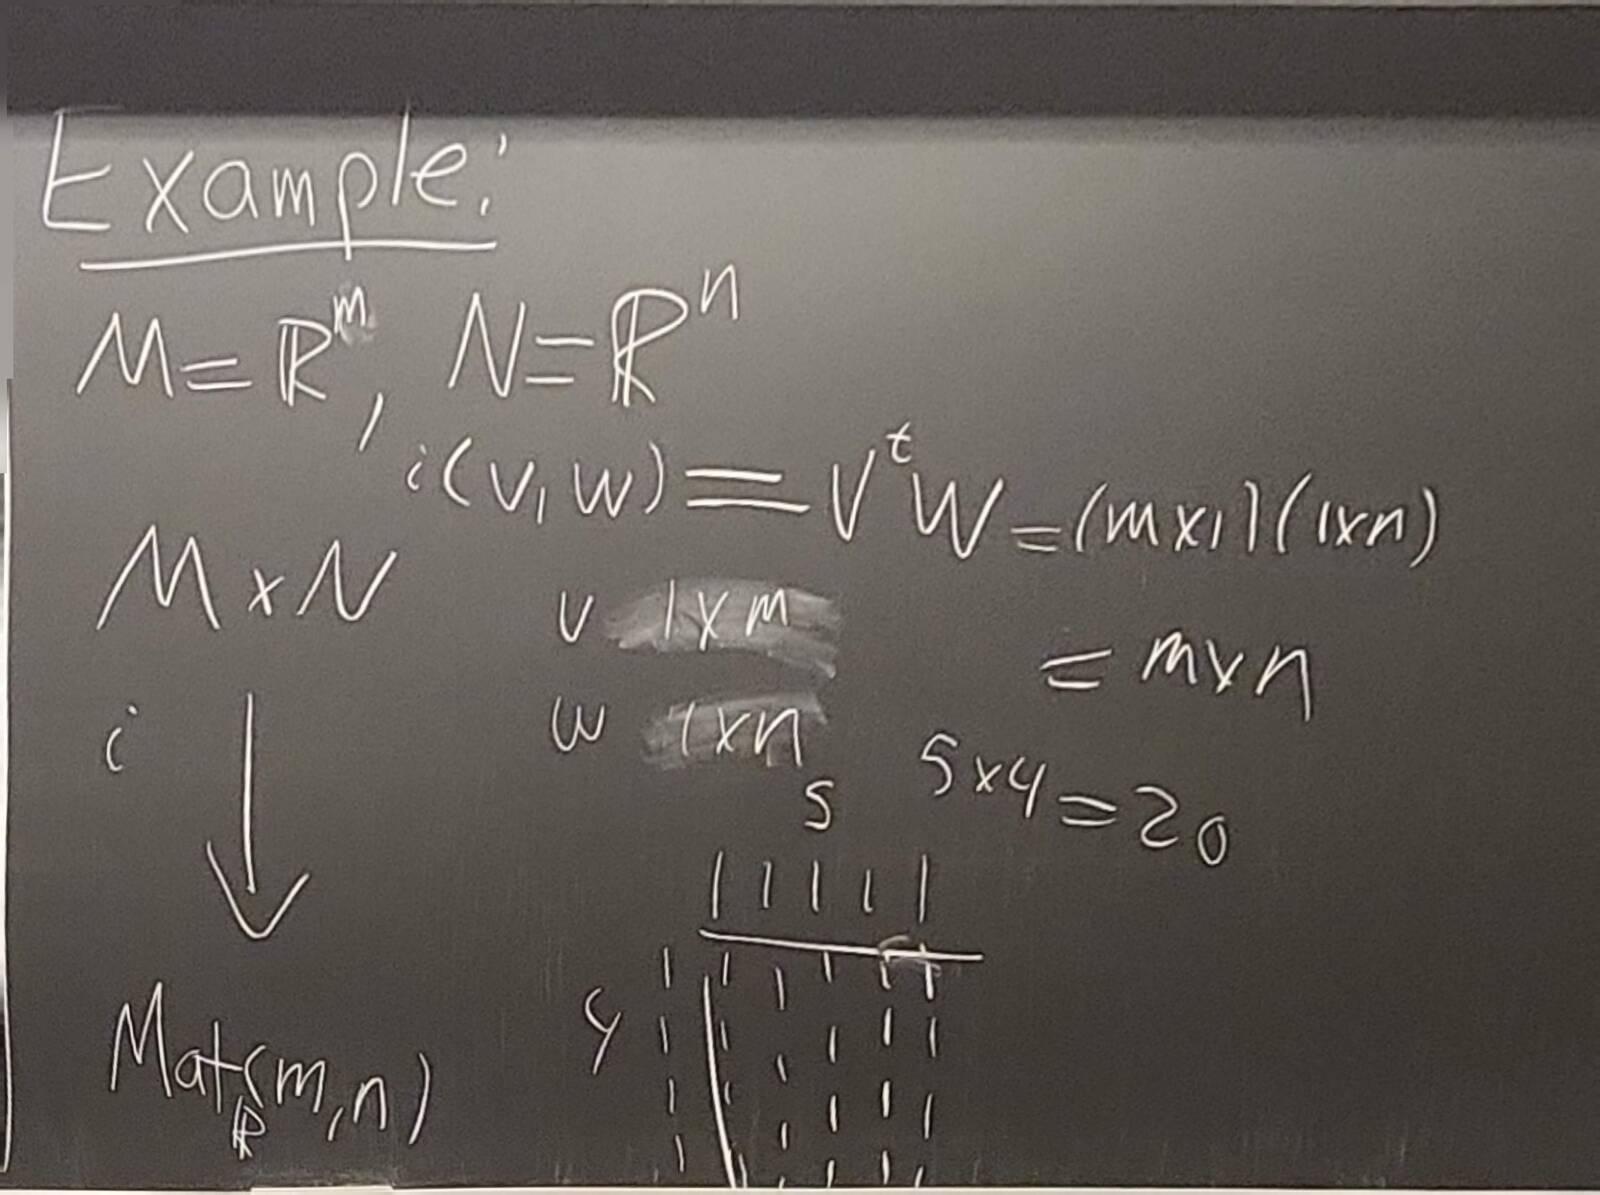 Example:
M = ℝᵐ, N = ℝⁿ
i(v, w) = vᵗw = (m×1)(1×n)
M × N
v 1×m
= m×n
w 1×n
i
5×4 = 20
5
4
Mat_ℝ(m,n)